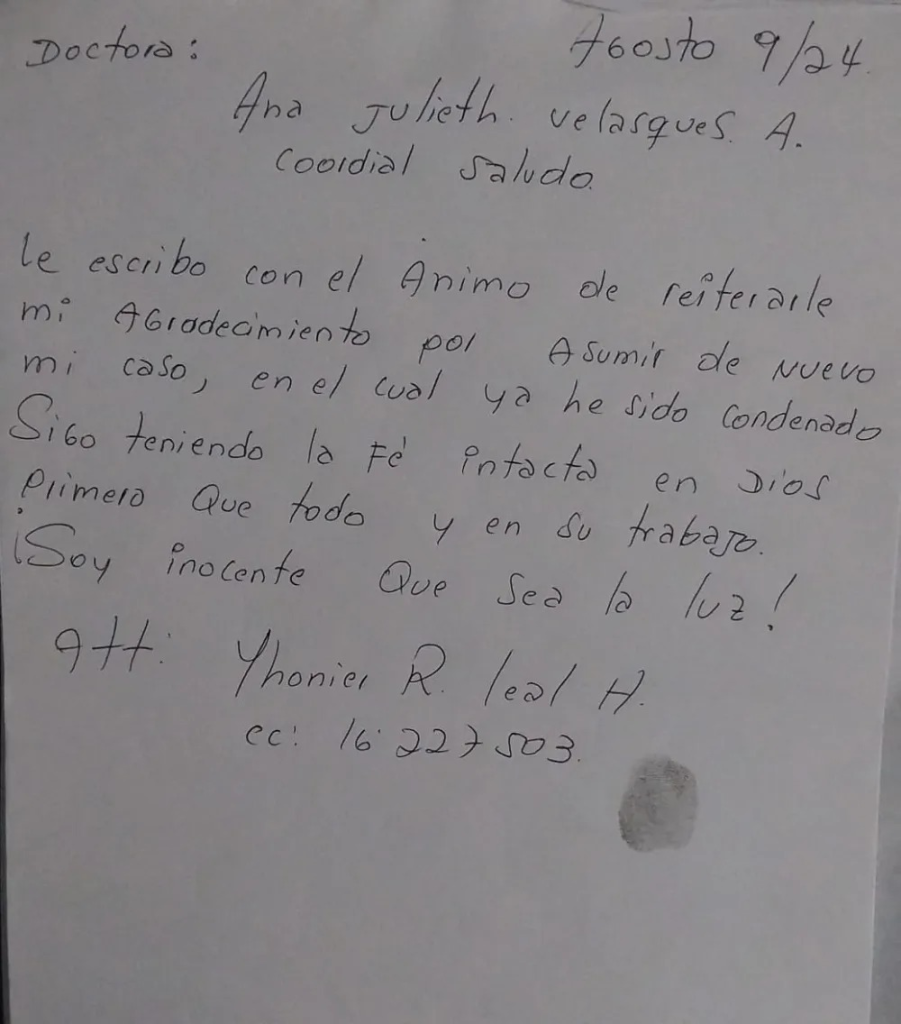 Doctora: Agosto 9/24.
Ana Julieth. Velasques. A.
Coordial Saludo.
le escribo con el Animo de reiterarle
mi AGradecimiento por Asumir de Nuevo
mi caso, en el cual ya he sido Condenado
SiGo teniendo la Fé intacta en Dios
Primero Que todo y en su trabajo.
¡Soy inocente Que sea la luz!
Att: Yhonier R. leal H.
cc: 16.227503.